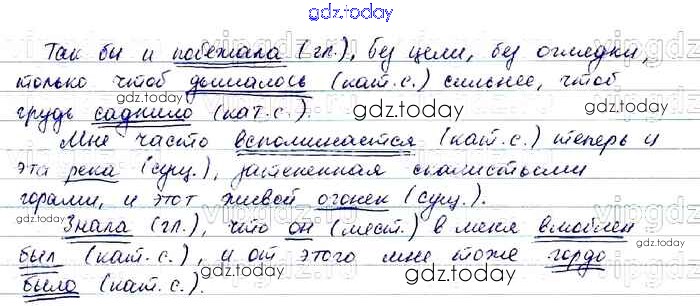 gdz.today
Так бы и побежала (гл.), без цели, без оглядки,
только чтоб дышалось (кат.с.) сильнее, чтоб
gdz.today gdz.today
грудь саднило (кат.с.).
Мне часто вспоминается (кат.с.) теперь и
эта река (сущ.), затененная скалистыми
gdz.today gdz.today
горами, и этот живой огонек (сущ.).
Знала (гл.), что он (мест.) в меня влюблен
gdz.today
был (кат.с.), и от этого мне тоже гордо
gdz.today
было (кат.с.).
gdz.today